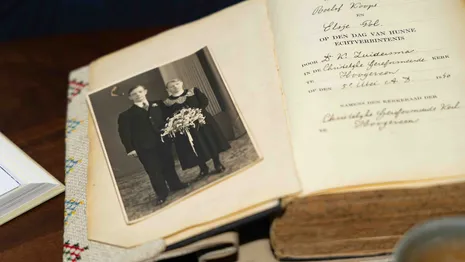 Roelof Koops
EN
Elsje Pol
OP DEN DAG VAN HUNNE
ECHTVERBINTENIS
DOOR Ds W. Zuidersma
IN DE Christelijke Gereformeerde KERK
TE Hoogeveen
OP DEN 5e Mei A.D.
NAMENS DEN KERKERAAD DER
Christelijke Gereformeerde Kerk
TE Hoogeveen